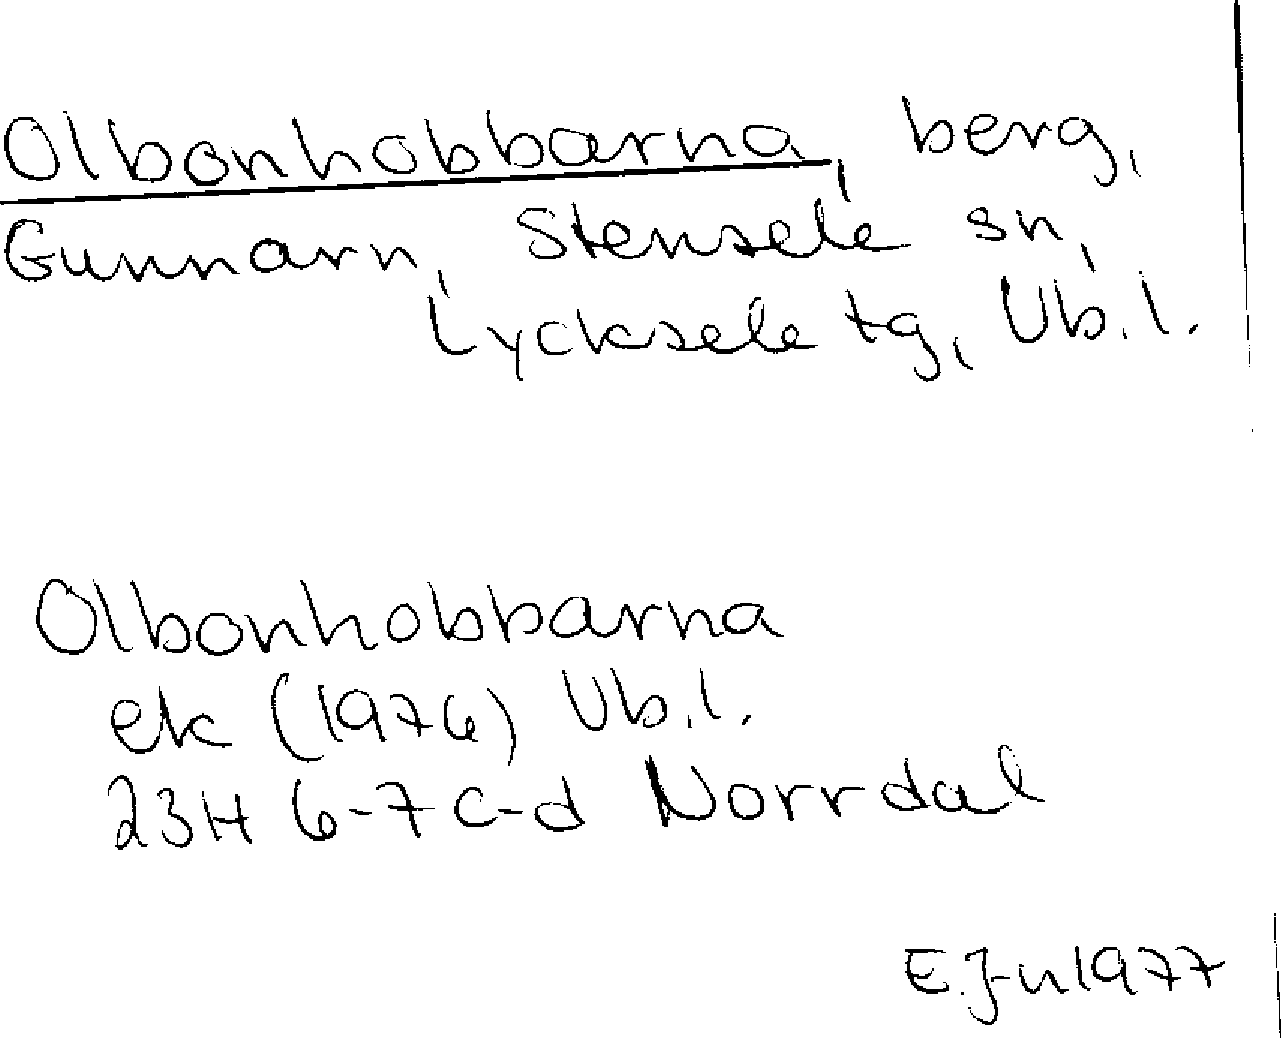 Olbonhobbarna, berg,
Gunnarn, Stensele sn,
Lycksele tg, Vb.l.
Olbonhobbarna
ek (1976) Vb.l.
23H 6-7 c-d Norrdal
E.J-n 1977